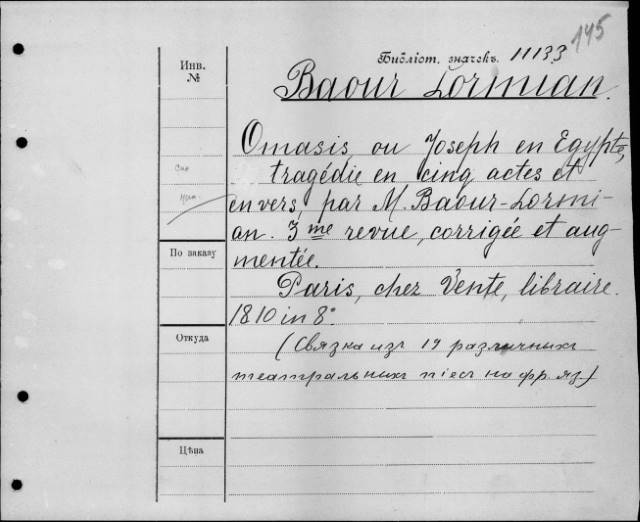 145
Библіот. значекъ. 11133
Baour Lormian.
Инв.
№
Omasis, ou Joseph en Egypte,
tragédie en cinq actes et
en vers, par M. Baour-Lormi-
an. 3me revue, corrigée et aug-
mentée.
Paris, chez Vente, libraire.
1810 in 8°.
(Связка изъ 19 различныхъ
театральныхъ піесъ на фр. яз)
По заказу
Откуда
Цѣна